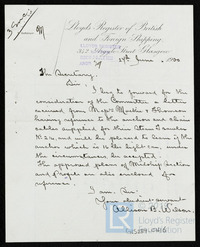 Lloyd's Register of British
and Foreign Shipping
342 Argyle Street, Glasgow
24th June 1900
The Secretary
Sir,
I beg to forward for the
consideration of the Committee a letter
received from Messrs
having reference to the anchors and chain
cables supplied for their
No 24, and will be pleased to learn if the
anchor which is light can, under
the circumstances, be accepted.
The approved plans of Midship Section
and Profile are also enclosed for
reference.
I am, Sir,
Your obedient servant
Wilson
Lloyd's Register
Foundation